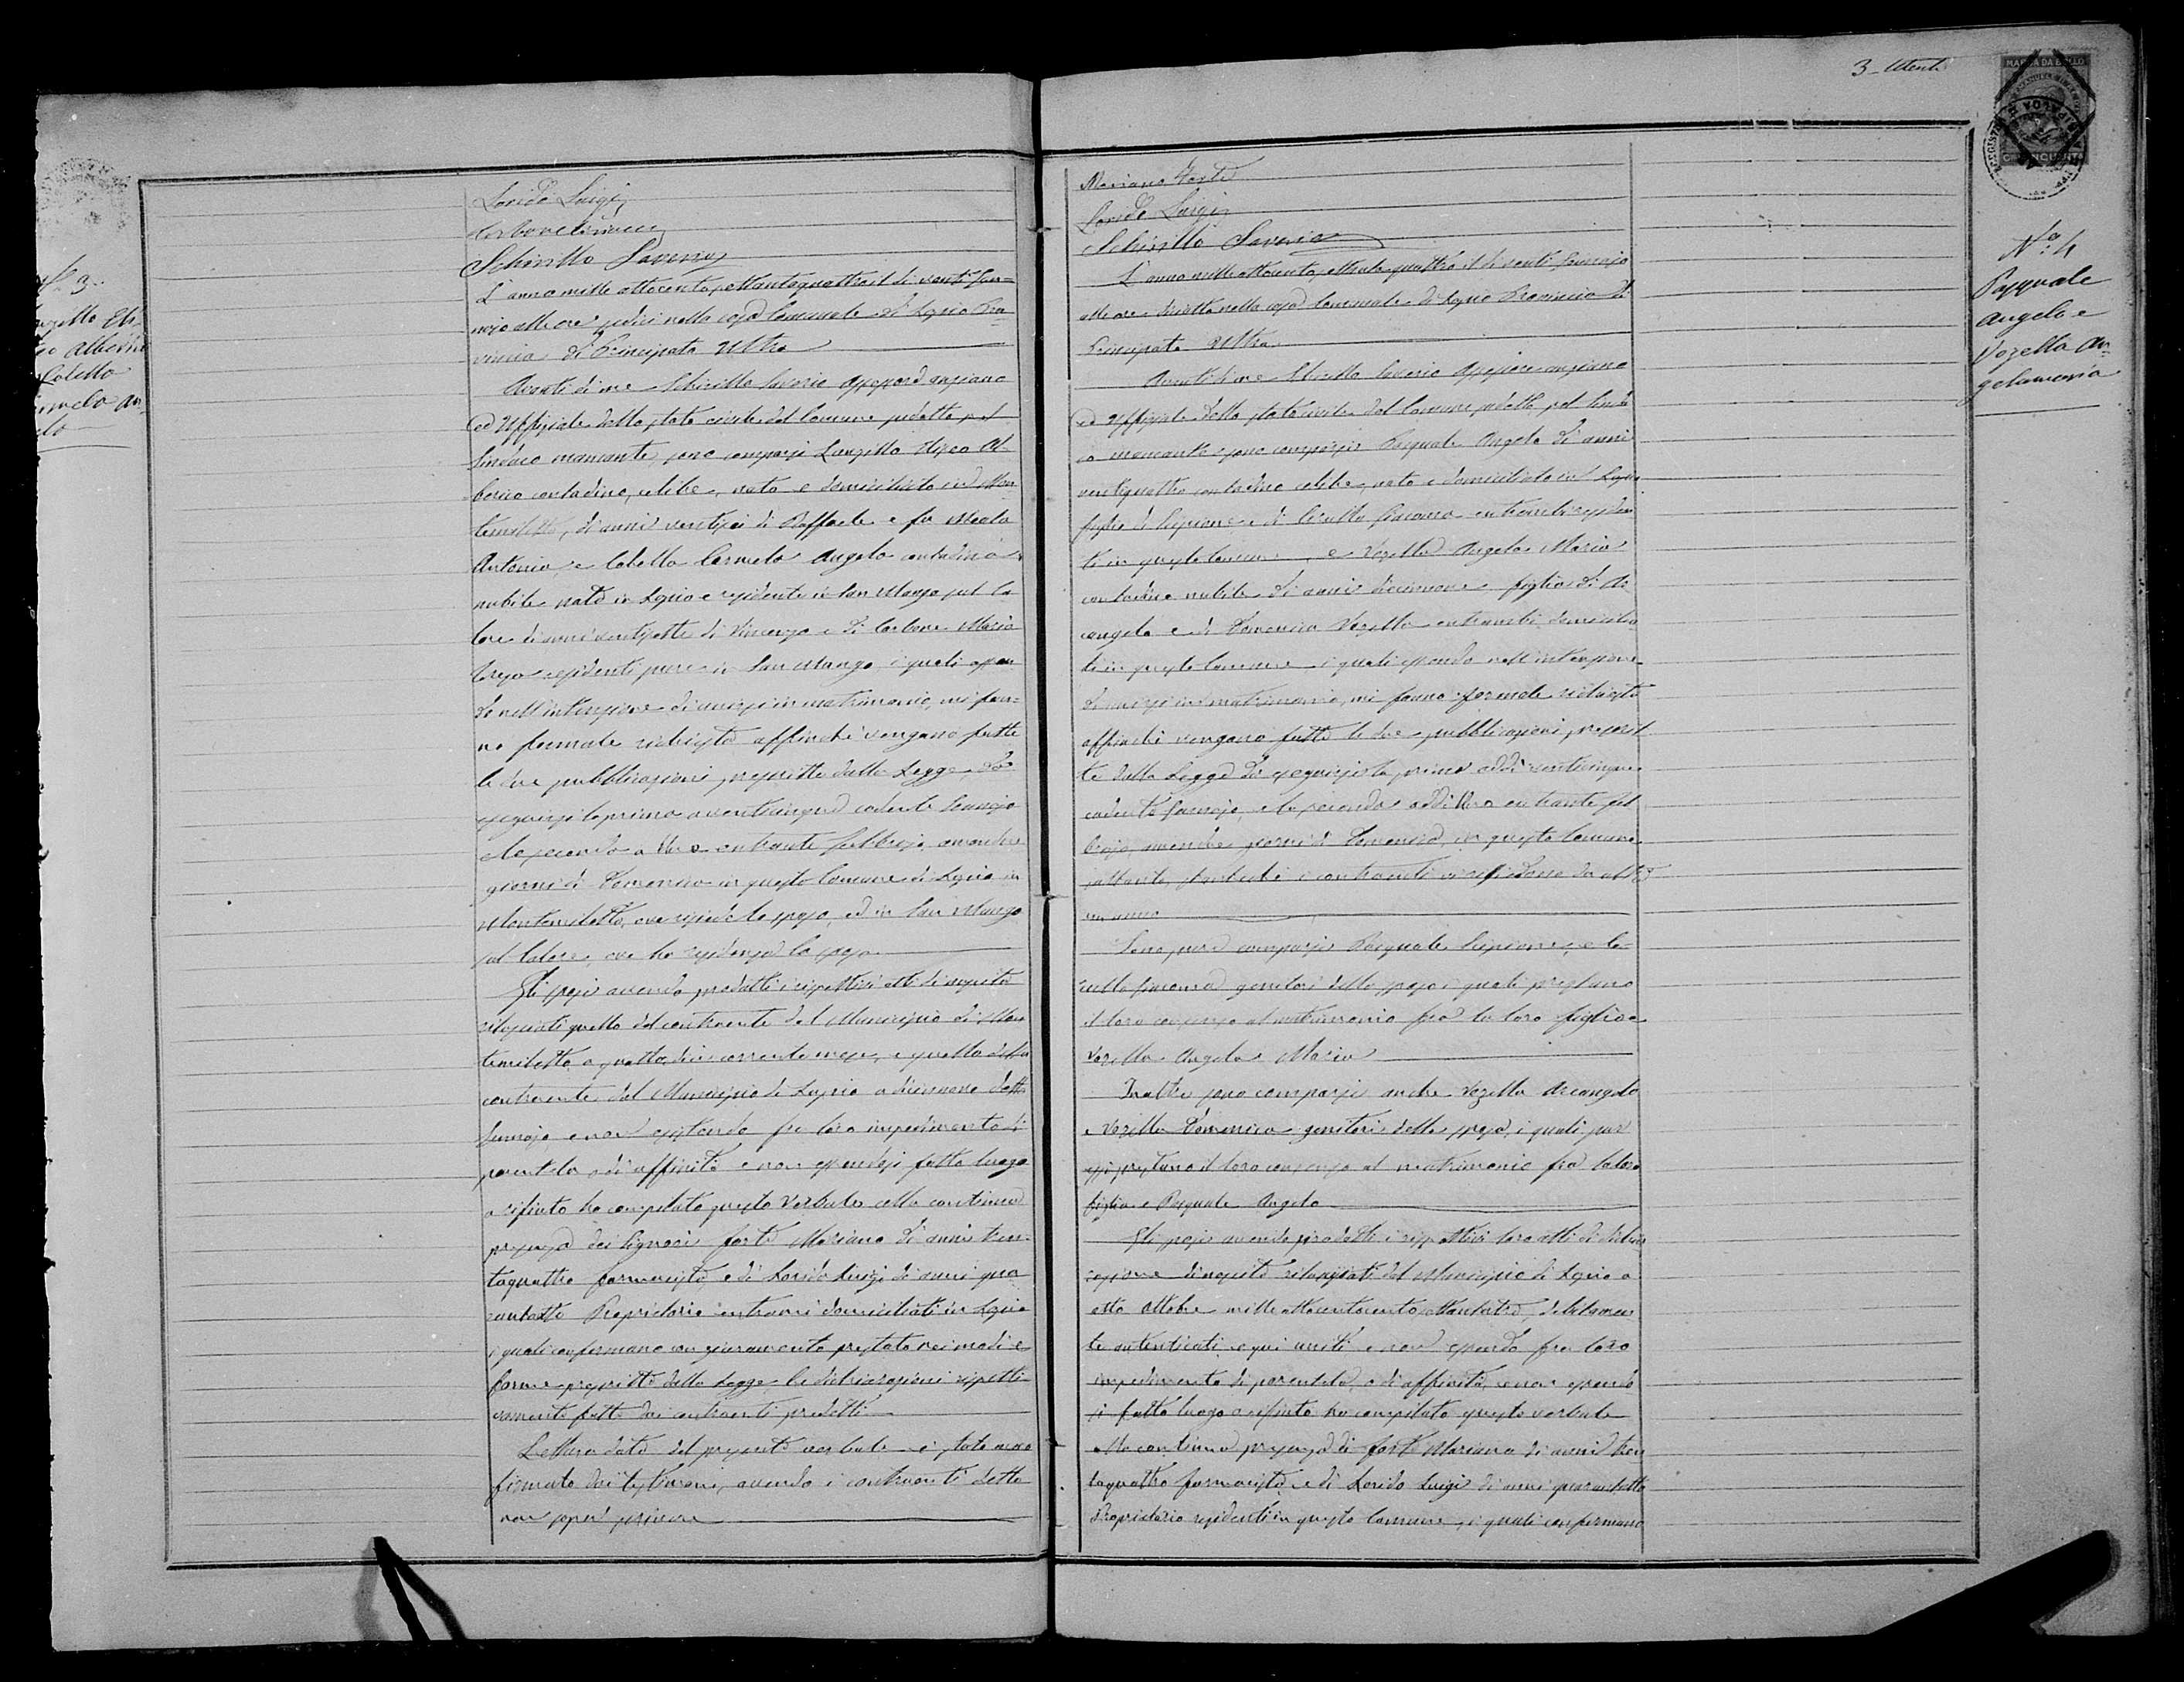 N. 3.
Colella
Lorido Luigi
Carbone
Schirillo Saverio
L'anno mille ottocento, ottantaquattro il dì venti Gen=
najo alle ore sedici nella casa Comunale di Lapio Pro=
vincia di Principato Ultra
Avanti di me Schirillo Saverio Assessore anziano
ed Uffiziale dello stato civile del Comune sudetto pel
Sindaco mancante, sono comparsi Lanzillo Al=
berico contadino, celibe, nato e domiciliato in Mon=
temiletto, di anni ventisei di Raffaele e fu
Antonia, e Colella Carmela Angela contadina
nubile nata in Lapio e residente in San Mango sul Ca=
lore di anni ventisette di Vincenzo e di Carbone Maria
Teresa residenti pure in San Mango, i quali essen=
do nell'intenzione di unirsi in matrimonio, mi fan=
no formale richiesta affinchè vengano fatte
le due pubblicazioni prescritte dalla Legge, da
eseguirsi la prima a venticinque cadente Gennajo
e la seconda a tre entrante febbrajo, amendue
giorni di Domenica in questo Comune di Lapio in
Montemiletto, ove risiede lo sposo, ed in San Mango
sul Calore, ove ha residenza la sposa
Gli sposi avendo prodotti i rispettivi atti di nascita
rilasciati quello del contraente dal Municipio di Mon
temiletto a quattordici corrente mese, e quello della
contraente dal Municipio di Lapio a diciannove detto
Gennajo e non esistendo fra loro impedimento di
parentela, o di affinità e non essendosi fatto luogo
a rifiuto ho compilato questo Verbale alla continua
presenza dei Signori Forte Mariano di anni tren=
taquattro farmacista e di Lorido Luigi di anni qua
rantotto Proprietario entrambi domiciliati in Lapio
i quali confermano con giuramento prestato nei modi e
forme prescritte dalla Legge le dichiarazioni rispetti
vamente fatte dai contraenti predetti
Lettura data del presente verbale è stato
firmato dai testimoni, avendo i contraenti detto
non saper scrivere
3
MARCA DA BOLLO
CINQUANTA
Mariano Forte
Lorido Luigi
Schirillo Saverio
L'anno mille ottocento, ottantaquattro il dì venti Gennajo
alle ore diciotto nella casa Comunale di Lapio Provincia di
Principato Ultra
Avanti di me Schirillo Saverio Assessore anziano
ed Uffiziale dello stato civile del Comune sudetto pel Sinda
co mancante sono comparsi Pasquale Angelo di anni
ventiquattro contadino celibe, nato e domiciliato in Lapio
figlio di Scipione e di Cerullo Giacoma entrambi residen
ti in questo Comune, e Vozella Angela Maria
contadina nubile di anni diciannove figlia di Ar
cangelo e di Domenica Vozella entrambi domicilia
ti in questo Comune, i quali essendo nell'intenzione
di unirsi in matrimonio, mi fanno formale richiesta
affinchè vengano fatte le due pubblicazioni prescrit
te dalla Legge da eseguirsi la prima addì venticinque
cadente Gennajo, e la seconda addì tre entrante feb
brajo, amendue giorni di Domenica, in questo Comune
soltanto, stantechè i contraenti vi risiedono da oltre
un anno
Sono pure comparsi Pasquale Scipione, e Ce
rullo Giacoma genitori dello sposo i quali prestano
il loro consenso al matrimonio fra la loro figlio e
Vozella Angela Maria
Inoltre sono comparsi anche Vozella Arcangelo
e Vozella Domenica genitori della sposa, i quali pur
essi prestano il loro consenso al matrimonio fra la loro
figlia e Pasquale Angelo
Gli sposi avendo prodotti i rispettivi loro atti di
di nascita rilasciati dal Municipio di Lapio a
otto Ottobre mille ottocento ottantatre, debitamen
te autenticati e qui uniti e non essendo fra loro
impedimento di parentela, o di affinità, e non essendo
si fatto luogo a rifiuto ho compilato questo verbale
alla continua presenza di Forte Mariano di anni tren
taquattro farmacista e di Lorido Luigi di anni quarantotto
Proprietario residenti in questo Comune, i quali confermano
N.º 4
Pasquale
Angelo e
Vozella An=
gelamaria